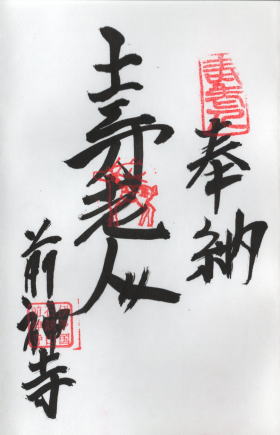 奉納
寿老人
前神寺